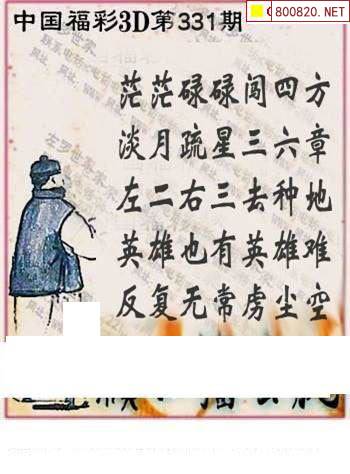 中国福彩3D第331期
800820.NET
茫茫碌碌闯四方
淡月疏星三六章
左二右三去种地
英雄也有英雄难
反复无常虏尘空